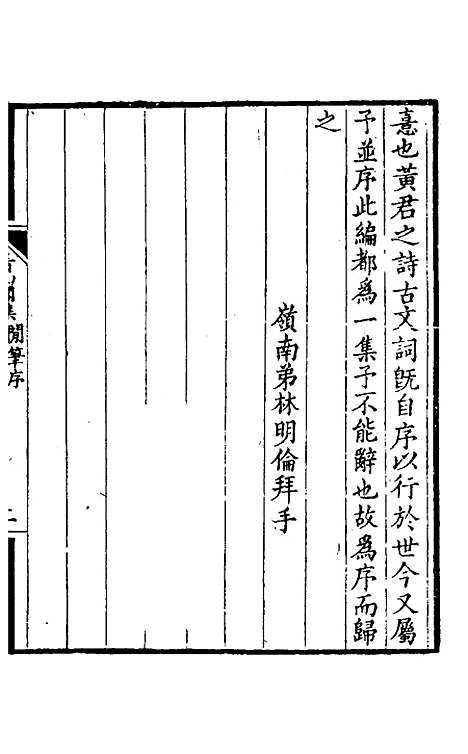 意也黃君之詩古文詞旣自序以行於世今又屬
予並序此編都爲一集予不能辭也故爲序而歸
之
嶺南弟林明倫拜手
集閒筆序
二